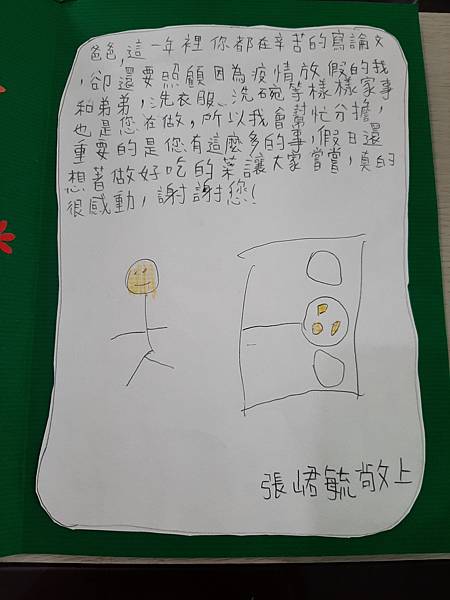 爸爸,這一年裡你都在辛苦的寫論文
,卻還要照顧因為疫情放假的我
和弟弟,洗衣服、洗碗等樣樣家事
也是您在做,所以我會幫忙分擔,
重要的是您有這麼多的事,假日還
想著做好吃的菜讓大家嘗嘗,真的
很感動,謝謝您!
張峮毓敬上